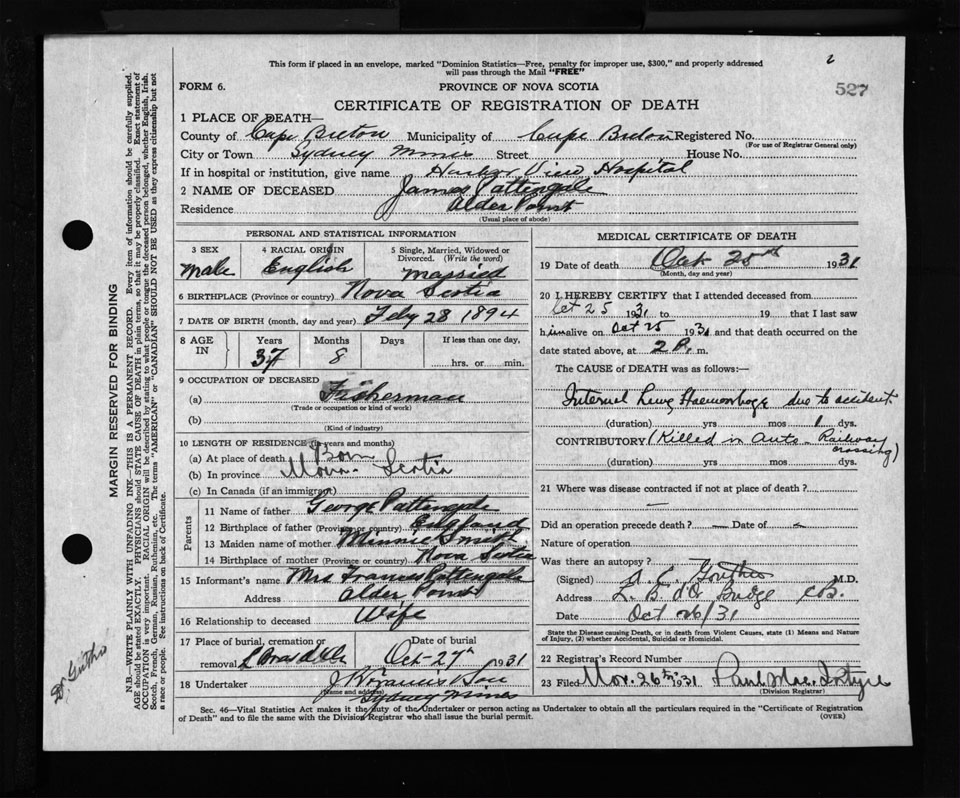 This form if placed in an envelope, marked "Dominion Statistics—Free, penalty for improper use, $300," and properly addressed
will pass through the Mail "FREE"
2
527
FORM 6.
PROVINCE OF NOVA SCOTIA
CERTIFICATE OF REGISTRATION OF DEATH
1 PLACE OF DEATH—
County of Cape Breton Municipality of Cape Breton Registered No.
(For use of Registrar General only)
City or Town Sydney Mines Street House No.
If in hospital or institution, give name Harbor View Hospital
2 NAME OF DECEASED James Pattengale
Residence Alder Point
(Usual place of abode)
PERSONAL AND STATISTICAL INFORMATION
3 SEX
Male
4 RACIAL ORIGIN
English
5 Single, Married, Widowed or
Divorced. (Write the word)
Married
6 BIRTHPLACE (Province or country) Nova Scotia
7 DATE OF BIRTH (month, day and year) Feby 28 1894
8 AGE IN
Years 37
Months 8
Days
If less than one day,
hrs. or min.
9 OCCUPATION OF DECEASED
(a) Fisherman
(Trade or occupation or kind of work)
(b)
(Kind of industry)
10 LENGTH OF RESIDENCE (in years and months)
(a) At place of death Born
(b) In province Nova Scotia
(c) In Canada (if an immigrant)
Parents
11 Name of father George Pattengale
12 Birthplace of father (Province or country) England
13 Maiden name of mother Minnie Smith
14 Birthplace of mother (Province or country) Nova Scotia
15 Informant's name Mrs Frances Pattengale
Address Alder Point
16 Relationship to deceased Wife
17 Place of burial, cremation or
removal L Bras d'Or
Date of burial
Oct-27th 1931
18 Undertaker J. Francis & Son
(Name and address)
Sydney Mines
MEDICAL CERTIFICATE OF DEATH
19 Date of death Oct 25th 1931
(Month, day and year)
20 I HEREBY CERTIFY that I attended deceased from
Oct 25 1931 to 19 that I last saw
him alive on Oct 25 1931 and that death occurred on the
date stated above, at 2 P. m.
The CAUSE of DEATH was as follows:—
Internal Lung Haemorhage due to accident
(duration) yrs mos 1 dys.
CONTRIBUTORY (Killed in Auto - Railway crossing)
(duration) yrs mos dys.
21 Where was disease contracted if not at place of death?
—
Did an operation precede death? — Date of —
Nature of operation
Was there an autopsy?
(Signed) M.D.
Address L. B d'O Bridge CB.
Date Oct 26/31
State the Disease causing Death, or in death from Violent Causes, state (1) Means and Nature
of Injury, (2) whether Accidental, Suicidal or Homicidal.
22 Registrar's Record Number
23 Filed Nov. 26th 1931 Paul Mac Intyre
(Division Registrar)
Sec. 46—Vital Statistics Act makes it the duty of the Undertaker or person acting as Undertaker to obtain all the particulars required in the "Certificate of Registration
of Death" and to file the same with the Division Registrar who shall issue the burial permit.
(OVER)
MARGIN RESERVED FOR BINDING
N.B.—WRITE PLAINLY WITH UNFADING INK—THIS IS A PERMANENT RECORD. Every item of information should be carefully supplied.
AGE should be stated EXACTLY. PHYSICIANS should STATE CAUSE OF DEATH in plain terms, so that it may be properly classified. Exact statement of
OCCUPATION is very important. RACIAL ORIGIN will be described by stating to what people or tongue the deceased person belonged, whether English, Irish,
Scotch, French, German, Russian, Ruthenian, etc. The terms "AMERICAN" or "CANADIAN" SHOULD NOT BE USED as they express citizenship but not
a race or people. See instructions on back of Certificate.
Dr Guthro